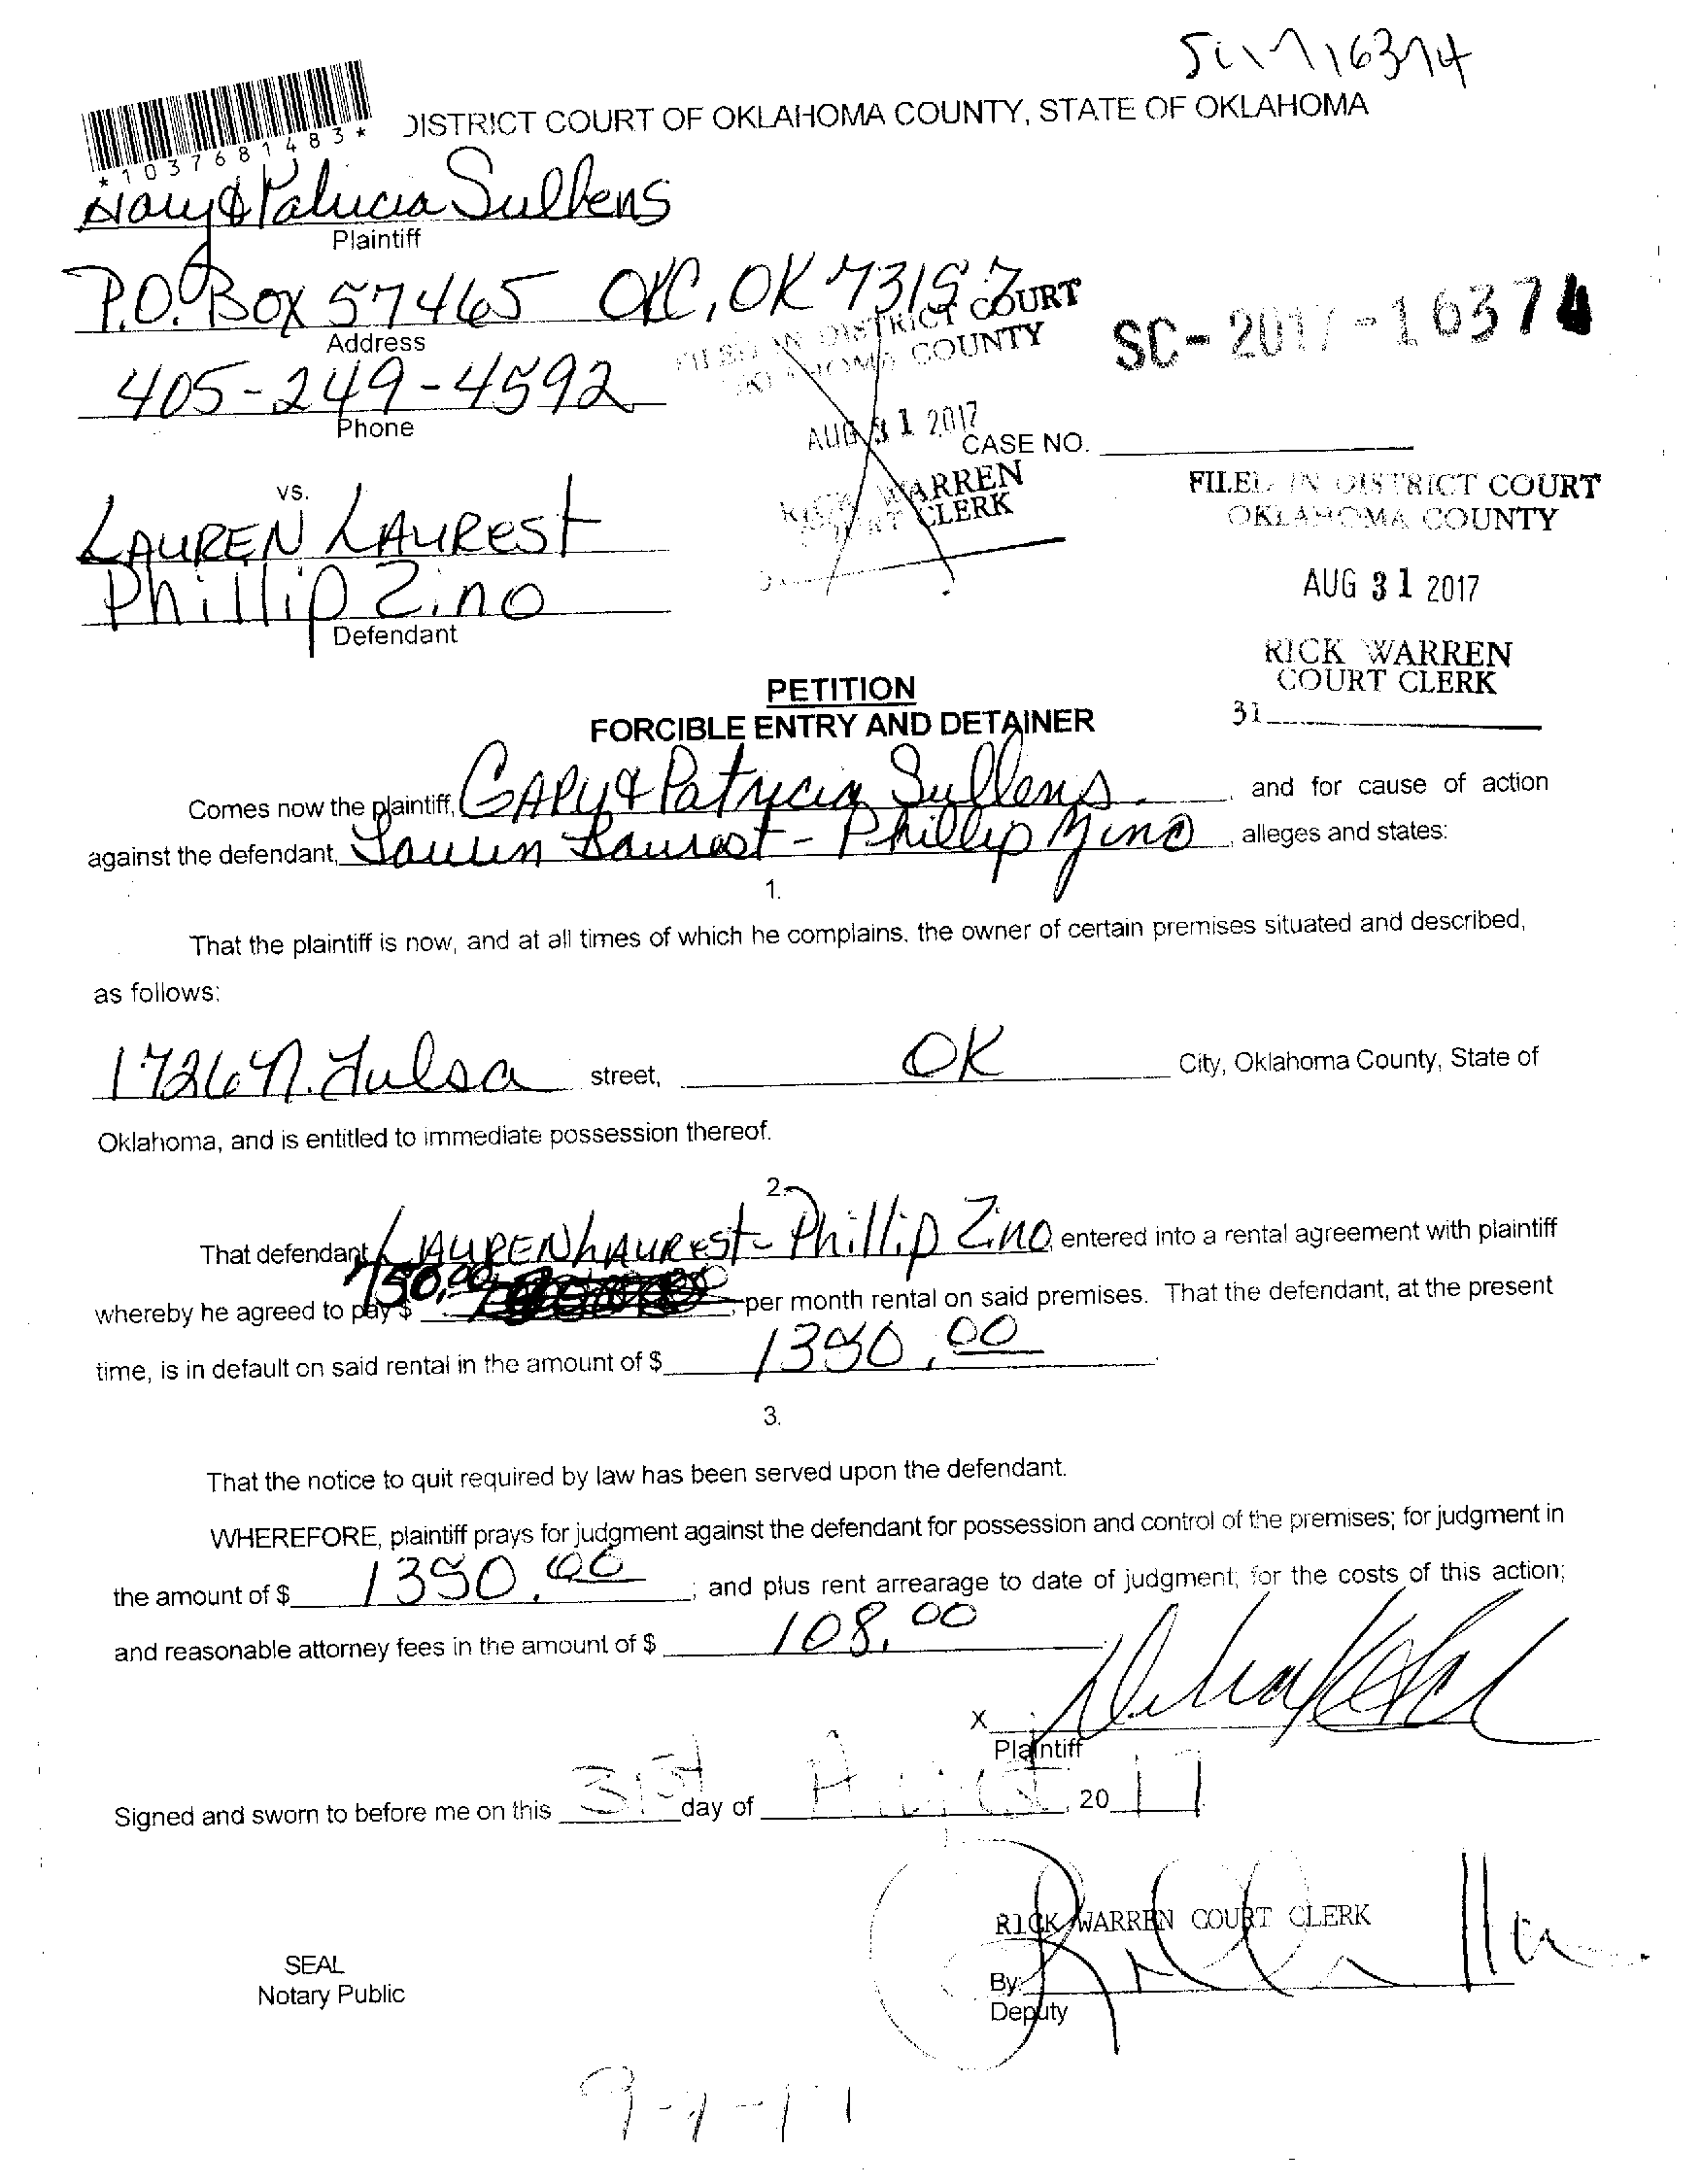 DISTRICT COURT OF OKLAHOMA COUNTY, STATE OF OKLAHOMA
*1037681483*
Gary & Patricia Sullens
Plaintiff
P.O. Box 57465 OKC, OK 73157
Address
FILED IN DISTRICT COURT
OKLAHOMA COUNTY
SC-2017-16374
405-249-4592
Phone
AUG 31 2017
CASE NO.
RICK WARREN
COURT CLERK
FILED IN DISTRICT COURT
OKLAHOMA COUNTY
vs.
LAUREN LAUREST
Phillip Zino
Defendant
AUG 31 2017
RICK WARREN
COURT CLERK
31
PETITION
FORCIBLE ENTRY AND DETAINER
Comes now the plaintiff, GARY & Patricia Sullens, and for cause of action
against the defendant, Lauren Laurest - Phillip Zino, alleges and states:
1.
That the plaintiff is now, and at all times of which he complains, the owner of certain premises situated and described,
as follows:
1726 N. Tulsa street, OK City, Oklahoma County, State of
Oklahoma, and is entitled to immediate possession thereof.
2.
That defendant LAUREN LAUREST - Phillip Zino, entered into a rental agreement with plaintiff
whereby he agreed to pay $ 750.00, per month rental on said premises. That the defendant, at the present
time, is in default on said rental in the amount of $ 1350.00.
3.
That the notice to quit required by law has been served upon the defendant.
WHEREFORE, plaintiff prays for judgment against the defendant for possession and control of the premises; for judgment in
the amount of $ 1350.00; and plus rent arrearage to date of judgment; for the costs of this action;
and reasonable attorney fees in the amount of $ 108.00
X
Plaintiff
Signed and sworn to before me on this 31st day of August, 2017
RICK WARREN COURT CLERK
SEAL
Notary Public
By:
Deputy